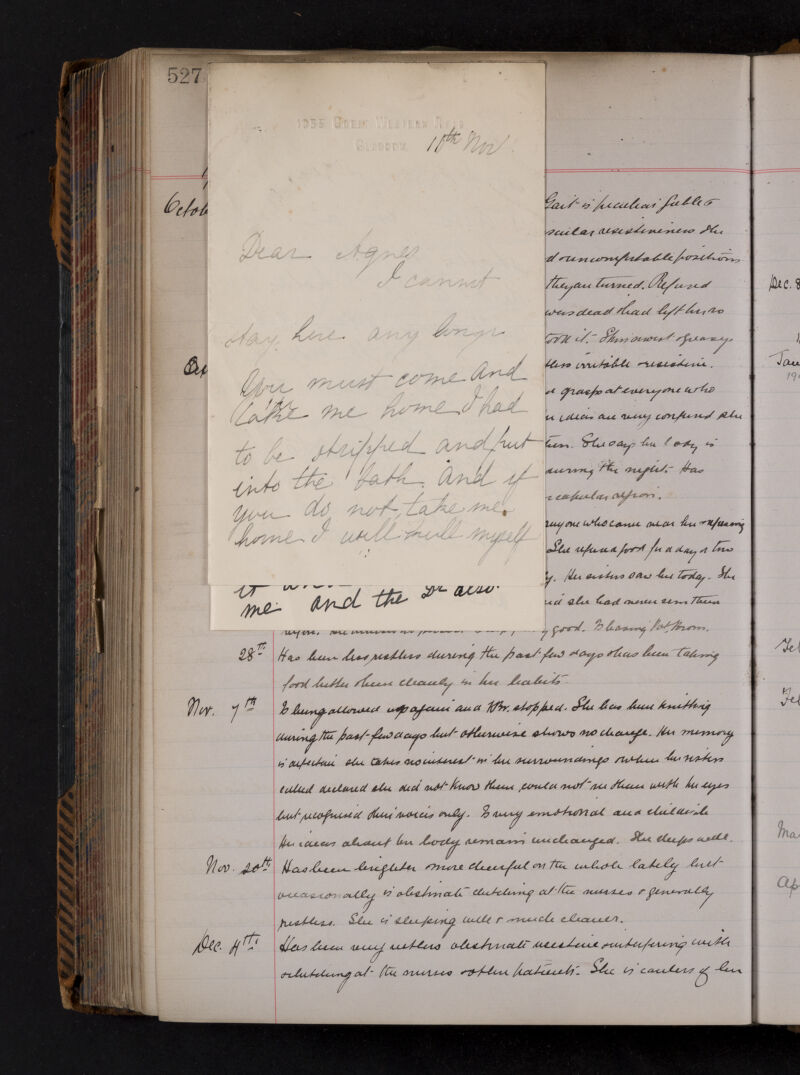 527
1055 Great Western Road
Glasgow
10th Nov
Dear Agnes
I cannot
stay here any longer
You must come and
take me home I had
to be stripped and put
into the bath and if
you do not take me
home I will kill myself
it
me. and the Dr also.
Octob
Gait is peculiar feeble &
resistiveness She
d uncomfortable positions
they are turned. Refused
was dead & had left her so
took it.
less irritable & resistive.
grasps at everyone who
ideas are very confused she
She says her body is
during the night. Has
scapular region.
anyone who came near her & refusing
She refused food for a day or two
Her sisters saw her today. She
said she had never seen them
good. Is having Pot. Brom.
28th Has been less restless during the past few days & has been taking
food better & been cleanly in her habits.
Nov. 7th Is being allowed up again and KBr. stopped. She has been knitting
during the past few days but otherwise shows no change. Her memory
is defective she takes no interest in her surroundings & when her sisters
called declared she did not know them, could not see them with her eyes
but recognised their voices only. Is very emotional and childish
Her ideas about her body remain unchanged. She sleeps well.
Nov. 20th Has been brighter & more cheerful on the whole lately but
occasionally is obstinate clutching at the nurses & generally
restless. She is sleeping well & much cleaner.
Dec. 4th Has been very restless obstinate resistive interfering with
& clutching at the nurses & other patients. She is careless of her
Dec. 8
Jan
19
Fe
Fe
Ma
Ap